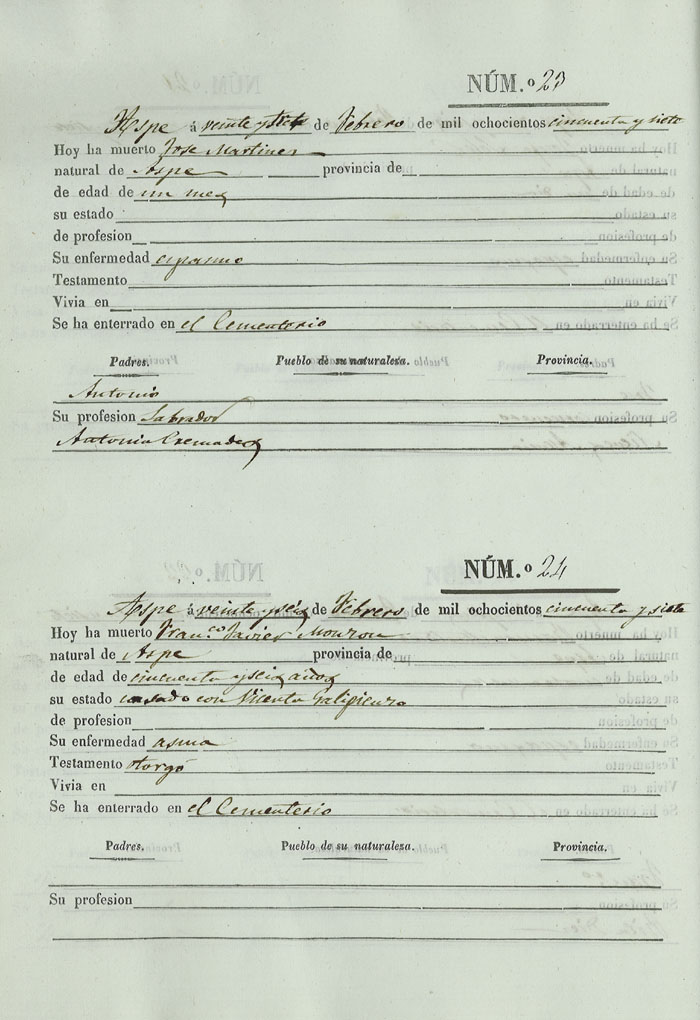 NÚM.º 23
Aspe á veinte y de Febrero de mil ochocientos cincuenta y siete
Hoy ha muerto Jose Martinez
natural de Aspe provincia de
de edad de un mes
su estado
de profesion
Su enfermedad espasmo
Testamento
Vivia en
Se ha enterrado en el Cementerio
Padres. Pueblo de su naturaleza. Provincia.
Antonio
Su profesion Labrador
Antonia Cremades
NÚM.º 24
Aspe á veinte y seis de Febrero de mil ochocientos cincuenta y siete
Hoy ha muerto Fran.co Javier Monzon
natural de Aspe provincia de
de edad de cincuenta y seis años
su estado casado con Vicenta Galipienzo
de profesion
Su enfermedad asma
Testamento otorgó
Vivia en
Se ha enterrado en el Cementerio
Padres. Pueblo de su naturaleza. Provincia.
Su profesion